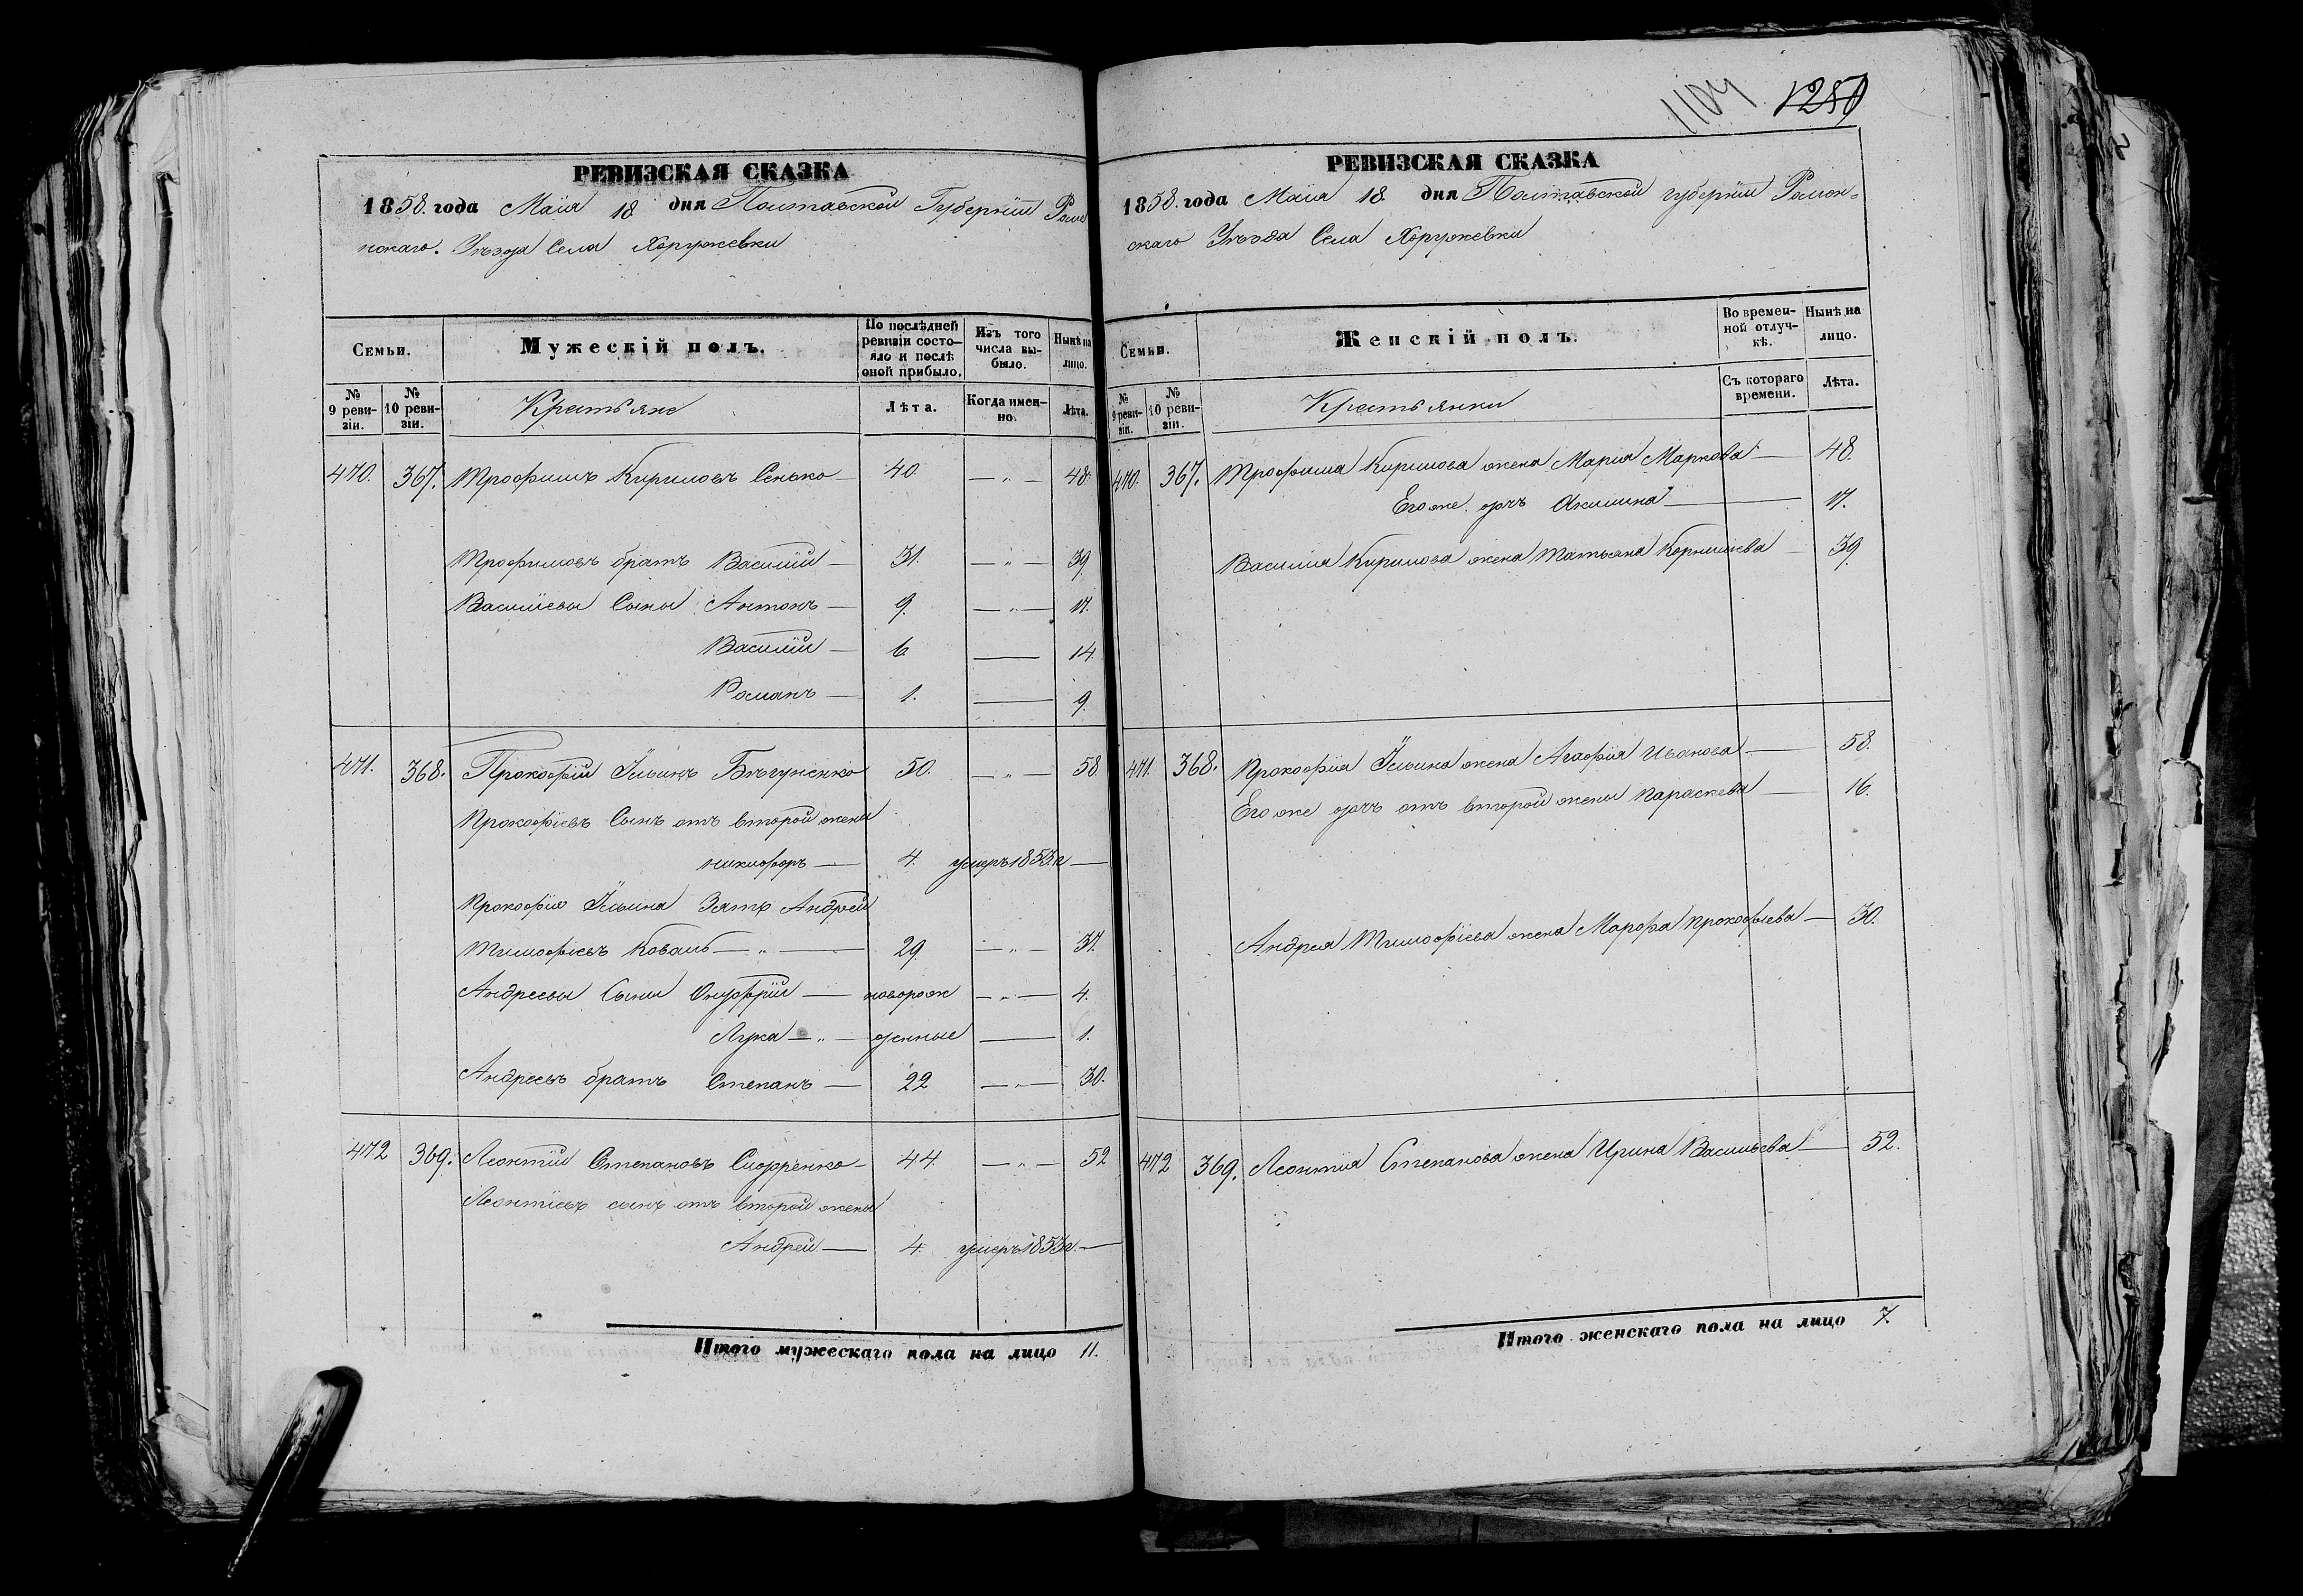 РЕВИЗСКАЯ СКАЗКА
1858. года Маія 18 дня Полтавской Губерніи Роме
нскаго. Уѣзда Села Хоружевки
Семьи.
Мужескій полъ.
По послѣдней ревизіи состояло и послѣ оной прибыло.
Изъ того числа выбыло.
Нынѣ на лицо.
№ 9 ревизіи.
№ 10 ревизіи.
Крестьяне
Лѣта.
Когда именно.
Лѣта.
470. 367. Трофимъ Кириловъ Сенько 40 — „ — 48
Трофимовъ братъ Василій — 31. — „ — 39
Василіевы Сыны Антонъ — 9. — „ — 17.
Василій — 6 — 14.
Романъ — 1. — 9.
471. 368. Прокофій Ильинъ Бѣгуненко 50. — „ — 58
Прокофіевъ Сынъ отъ второй жены
Никифоръ — 4. умеръ 1853 г —
Прокофія Ильина Зять Андрей
Тимофіевъ Коваль — „ — 29 — „ — 37.
Андреевы Сыны Онуфрій — новорож — „ — 4.
Лука — „ — денные — 1.
Андреевъ братъ Степанъ — 22 — „ — 30.
472 369. Леонтій Степановъ Сидоренко — 44. — „ — 52
Леонтіевъ сынъ отъ второй жены
Андрей — 4. умеръ 1853 г. —
Итого мужескаго пола на лицо 11.
1104 1280
РЕВИЗСКАЯ СКАЗКА
1858. года Маія 18 дня Полтавской губерніи Ромен-
скаго Уѣзда Села Хоружевки
Семьи.
Женскій полъ.
Во временной отлучкѣ.
Нынѣ на лицо.
№ 9 ревизіи.
№ 10 ревизіи.
Крестьянки
Съ котораго времени.
Лѣта.
470. 367. Трофима Кирилова жена Марія Маркова — 48.
Его же дочь Акилина — 17.
Василія Кирилова жена Татьяна Корнилиева — 39.
471. 368. Прокофія Ильина жена Агафія Иванова — 58.
Его же дочь отъ второй жены Параскева — 16.
Андрея Тимофіева жена Марфа Прокофьева — 30.
472 369. Леонтія Степанова жена Ирина Васильева — 52.
Итого женскаго пола на лицо 7.